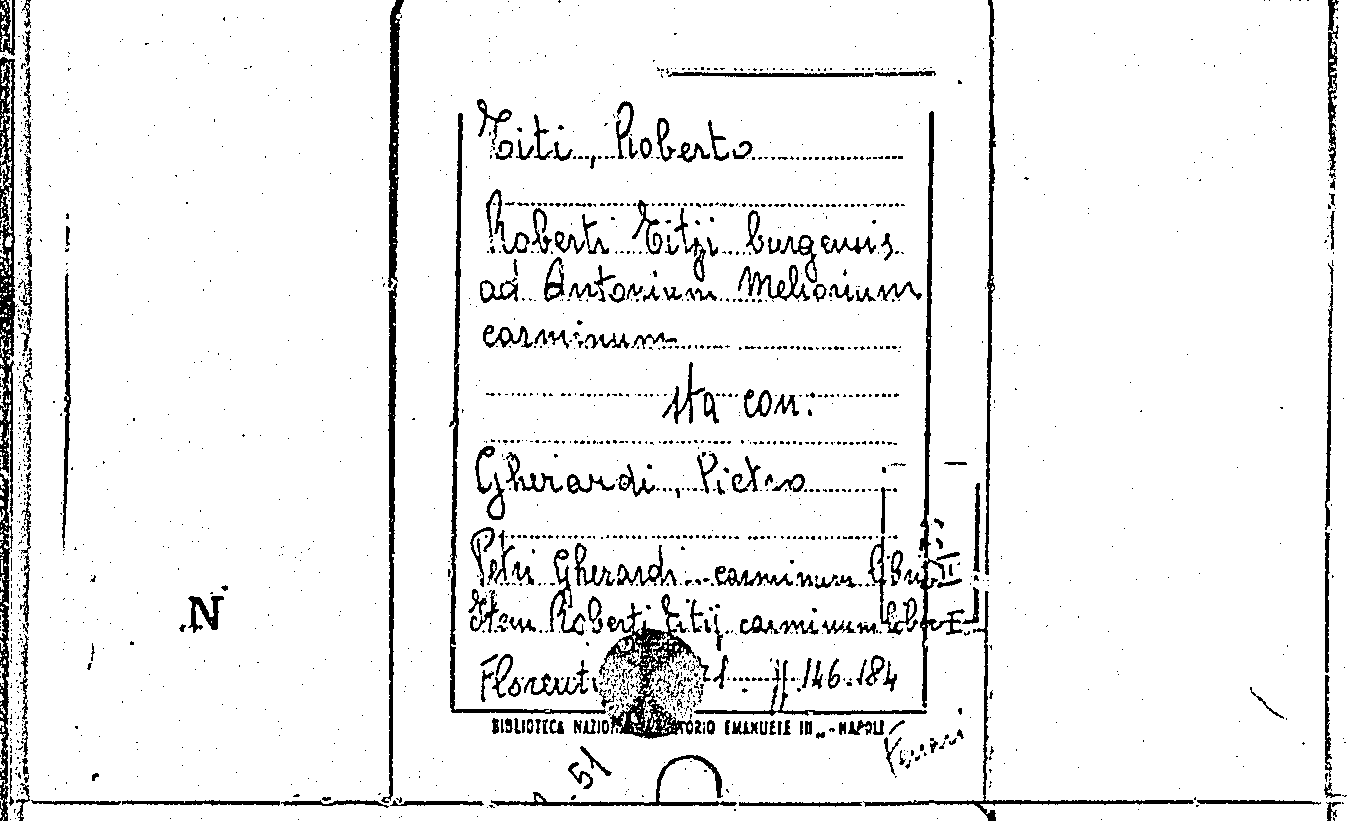 Titi, Roberto
Roberti Titji burgensis
ad Antonium Meliorium
carminum
sta con:
Gherardi, Pietro
Petri Gherardi carminum
Item Roberti Titij carminum liber I
ff. 146-184
BIBLIOTECA EMANUELE III - NAPOLI
N
51